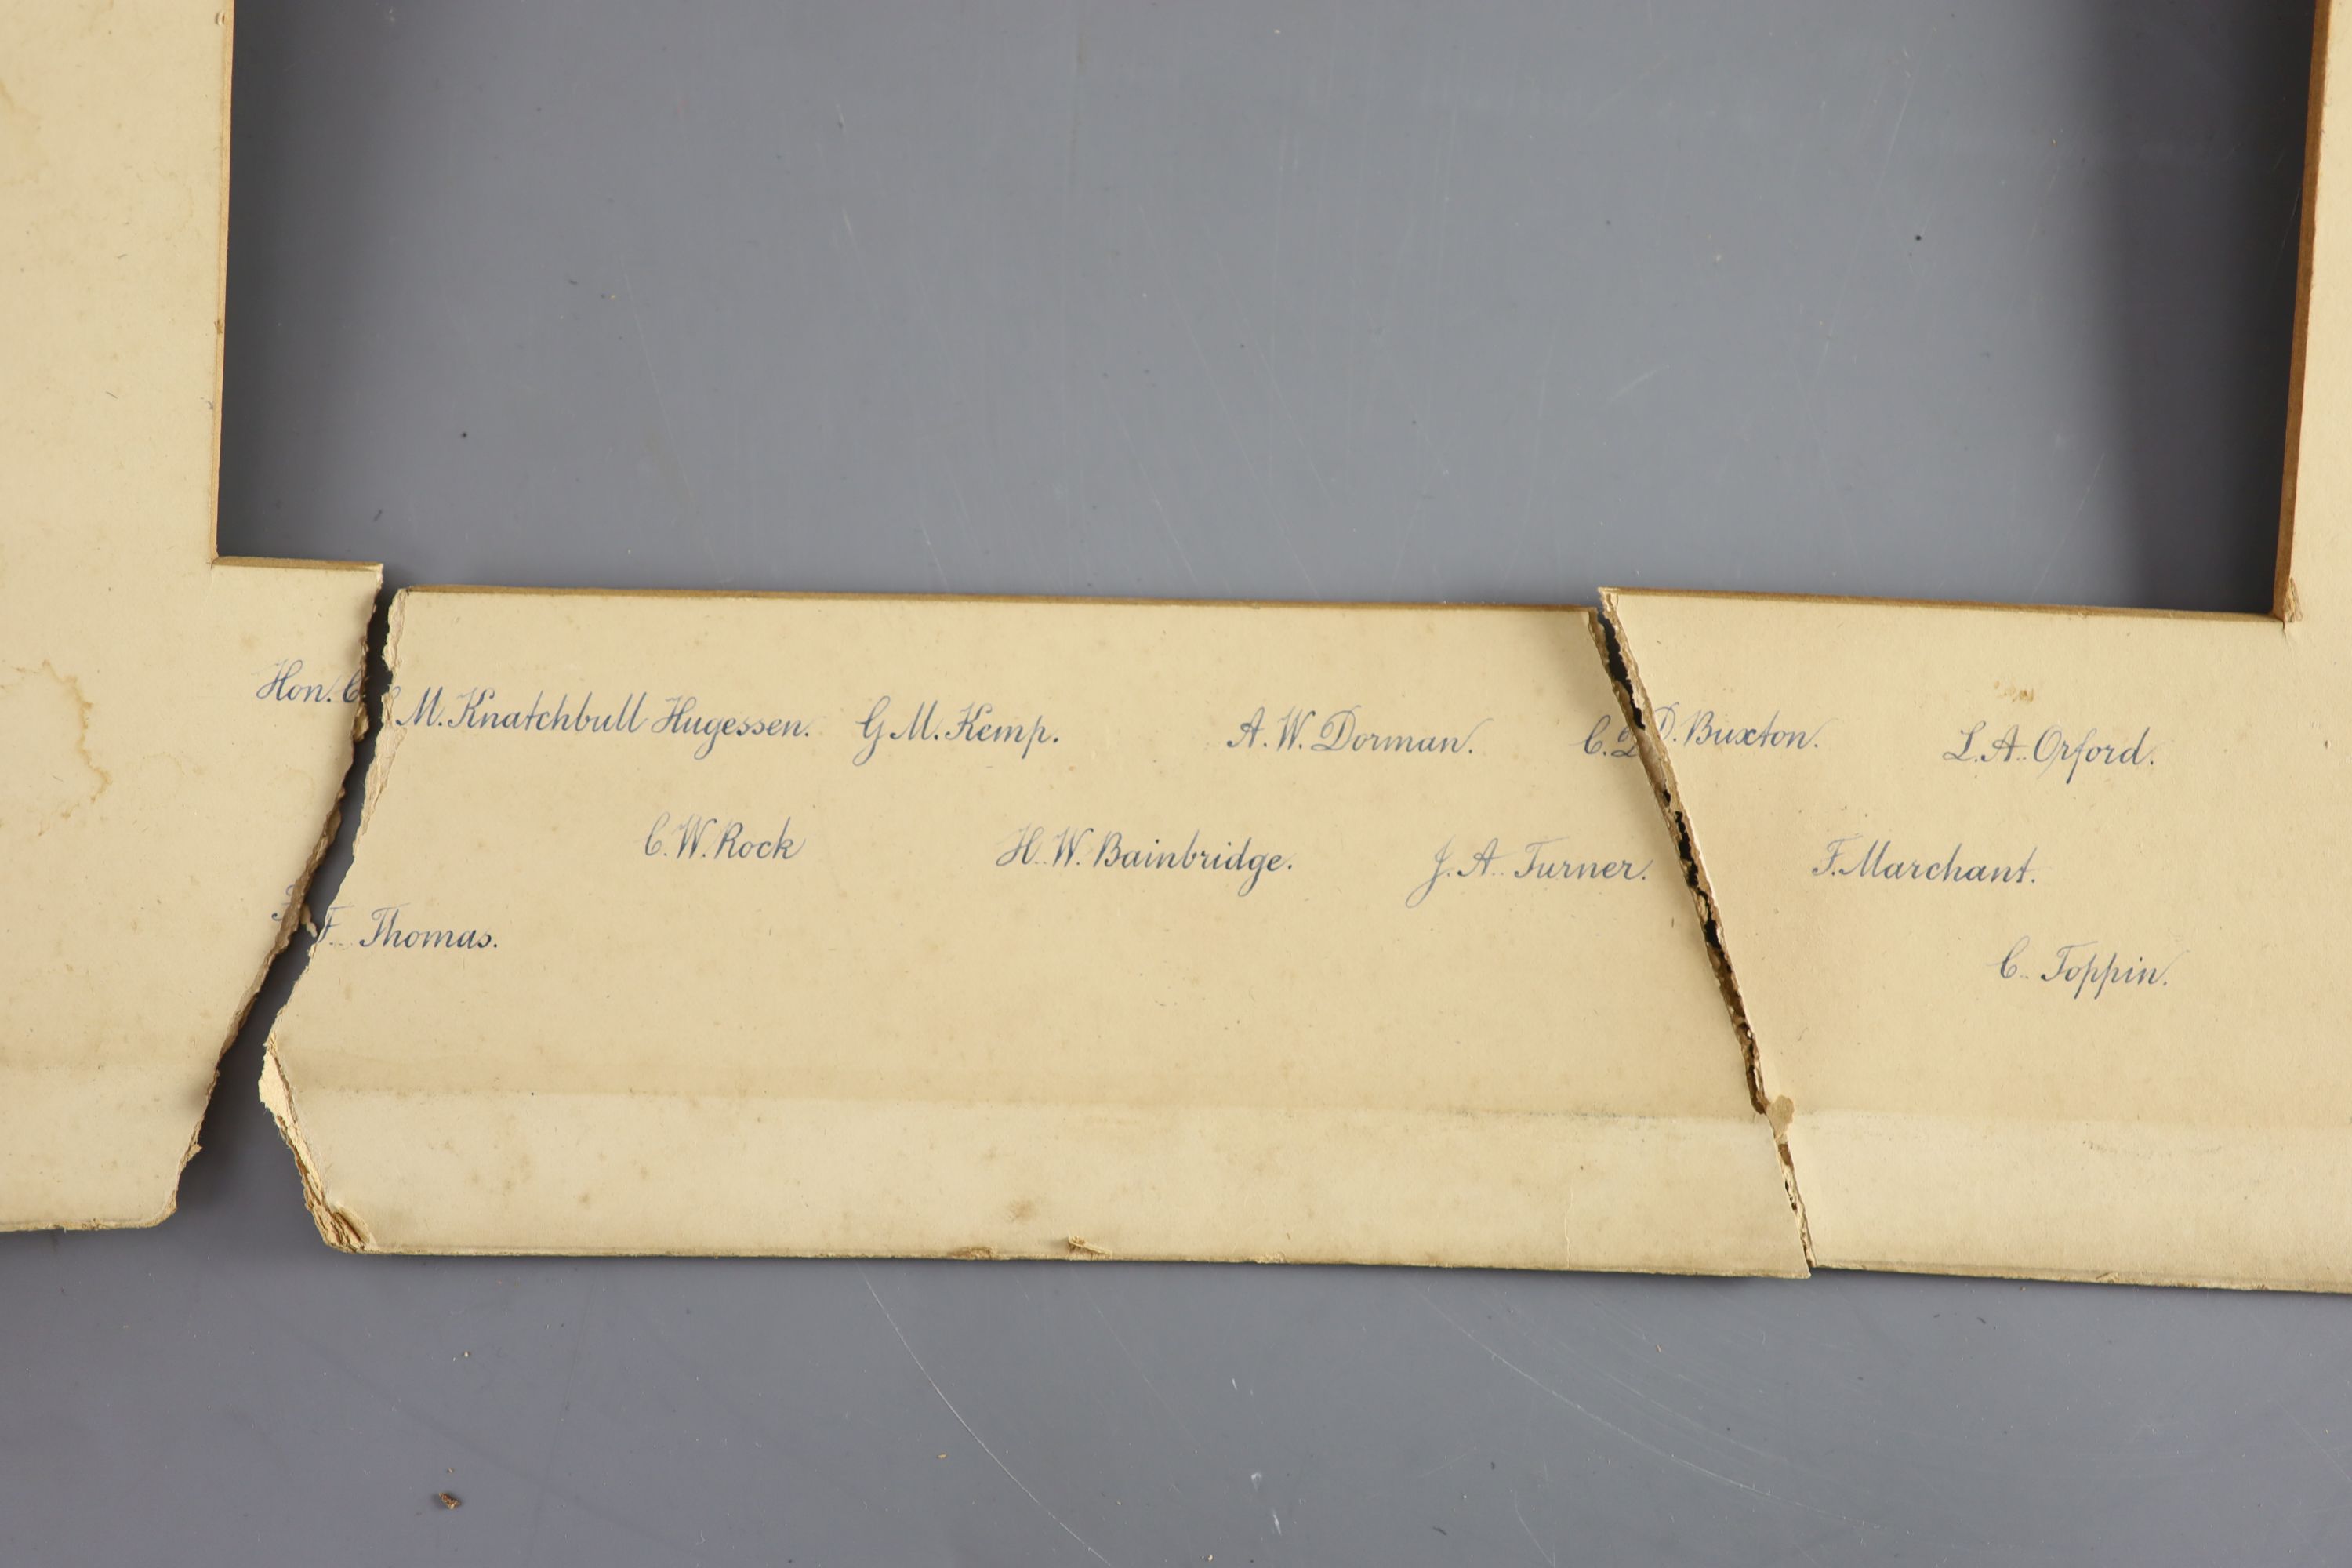 Hon. C. M. Knatchbull Hugessen. G. M. Kemp. A. W. Dorman. C. D. Buxton. L. A. Orford.
C. W. Rock H. W. Bainbridge. J. A. Turner. F. Marchant.
F. Thomas. C. Toppin.